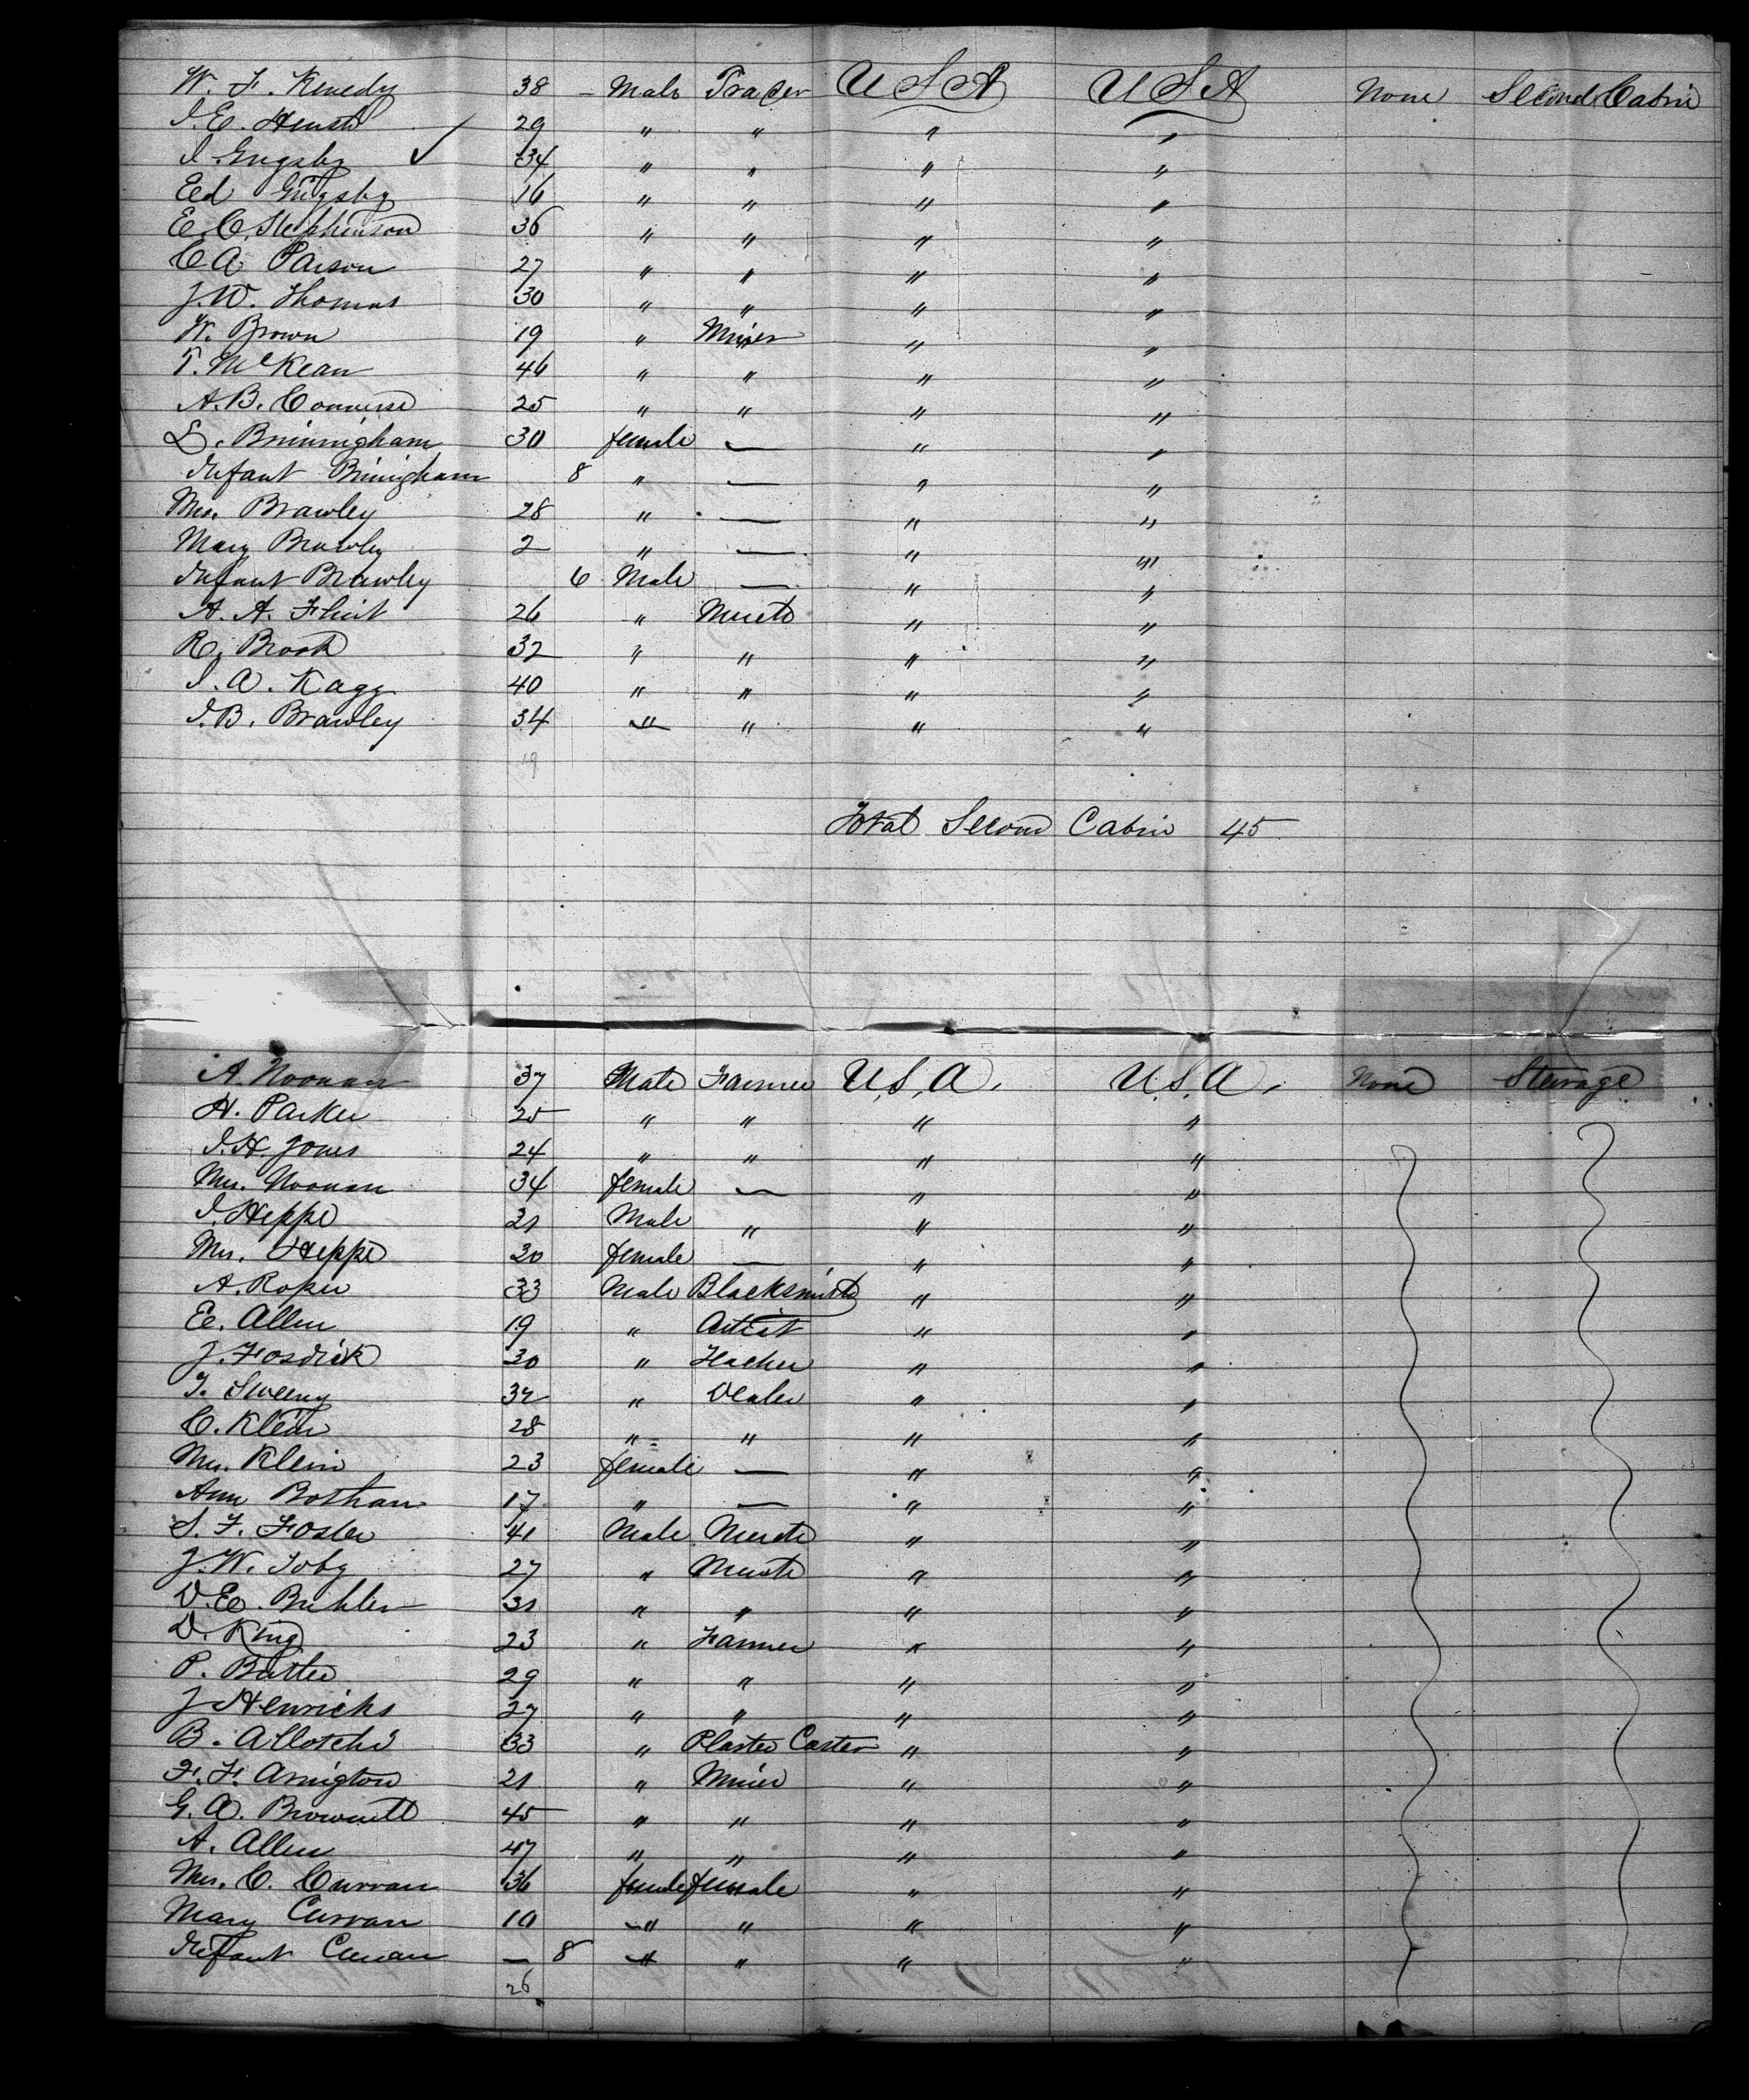 W. F. Kenedy 38 – Male Trader USA USA None Second Cabin
I. E. Hensh 29 " " " "
I. Grigsby ✓ 34 " " " "
Ed Grigsby 16 " " " "
E. C. Stephenson 36 " " " "
C A Parson 27 " " " "
J. W. Thomas 30 " " " "
W. Brown 19 " Miner " "
T. McKean 46 " " " "
A. B. Converse 25 " " " "
L. Brinnigham 30 female — " "
Infant Brinigham 8 " — " "
Mrs. Brawley 28 " — " "
Mary Brawley 2 " — " "
Infant Brawley 6 Male — " "
A. A. Flint 26 " Mercht " "
R. Brook 32 " " " "
I. A. Kagg 40 " " " "
I. B. Brawley 34 " " " "
19
Total Second Cabin 45
A. Noonan 37 Male Farmer U.S.A. U.S.A. None Steerage
H. Parker 25 " " " "
I. H. Jones 24 " " " "
Mrs. Noonan 34 female — " "
I. Heppe 31 Male " " "
Mrs. Heppe 30 female — " "
A. Roper 33 Male Blacksmith " "
E. Allen 19 " Artist " "
J. Fosdick 30 " Teacher " "
T. Sweeny 32 " Dealer " "
C. Klein 28 " " " "
Mrs. Klein 23 female — " "
Ann Bothan 17 " — " "
S. F. Foster 41 Male Mercht " "
J. W. Toby 27 " Mercht " "
D. E. Buhler 31 " " " "
D. King 23 " Farmer " "
P. Butler 29 " " " "
J Henricks 27 " " " "
B. Allotchi 33 " Plaster Caster " "
F. F. Arington 21 " Miner " "
G. A. Brownell 45 " " " "
A. Allen 47 " " " "
Mrs. C. Curran 36 female female " "
Mary Curran 10 " " " "
Infant Curran — 8 " " " "
26